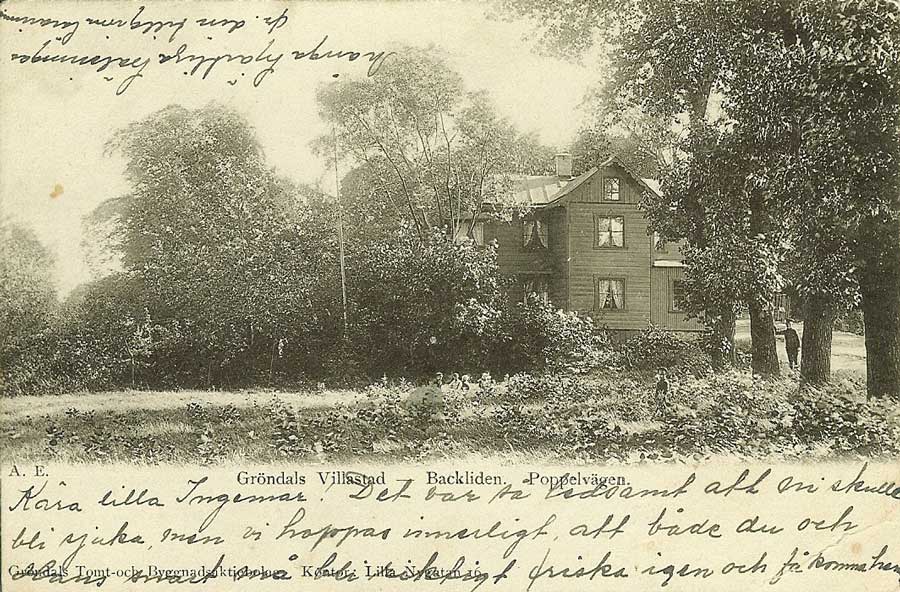 A. E.
Gröndals Villastad Backliden. Poppelvägen.
Kära lilla Ingemar! Det var så ledsamt att ni skulle
bli sjuka, men vi hoppas innerligt, att både du och
mor snart må bli riktigt friska igen och få komma hem
Gröndals Tomt-och Byggnadsaktiebolag. Kontor: Lilla Nygatan 16.
många hjärtliga hälsningar
fr. den